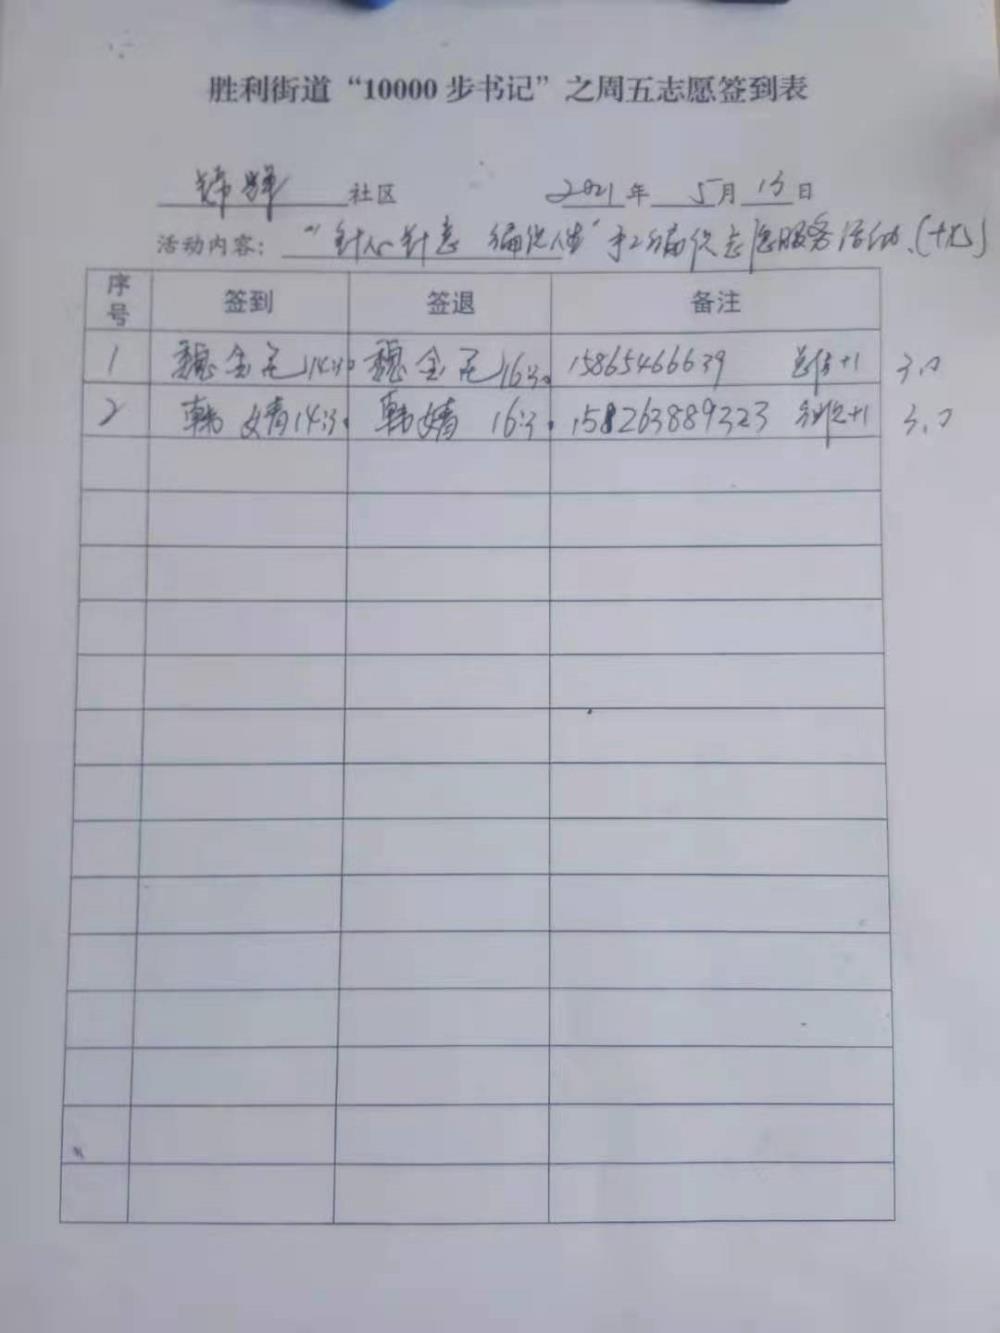 胜利街道“10000步书记”之周五志愿签到表
锦华社区 2021年5月13日
活动内容：“针心针意 编织人生”手工编织志愿服务活动、(十九)
序号 签到 签退 备注
1 魏金花 14:30 魏金花 16:30 15865466639 +1 3.0
2 韩婧 14:30 韩婧 16:30 158263889323 +1 3.0